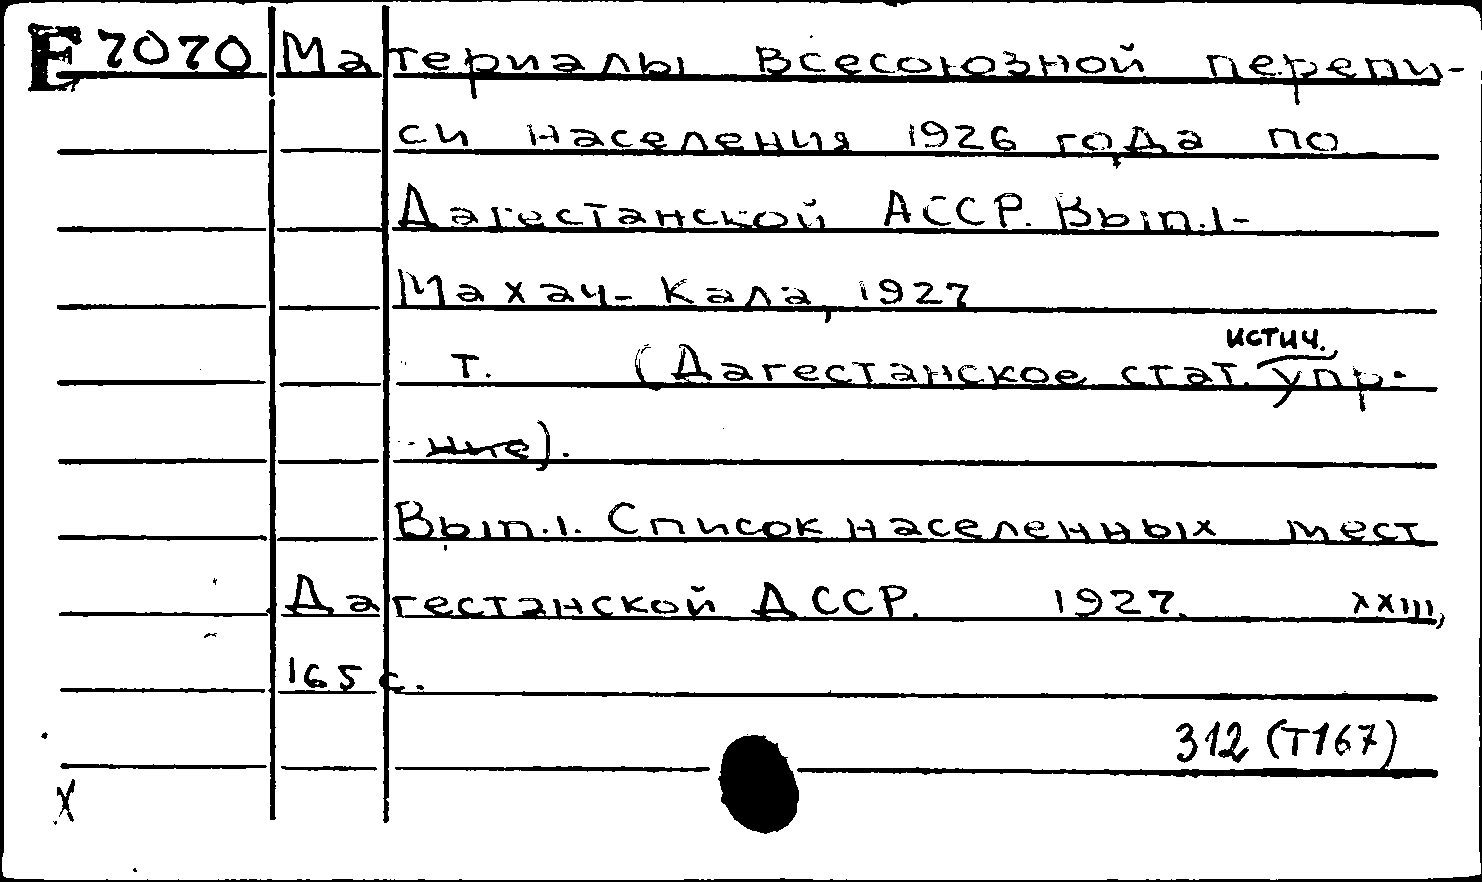 E 7070 Материалы Всесоюзной перепи-
си населения 1926 года по
Дагестанской АССР. Вып. 1-
Махач-Кала, 1927
истич.
т. (Дагестанское стат. упр-
ние).
Вып. 1. Список населенных мест
Дагестанской АССР. 1927. XXIII,
165 с.
312 (Т167)
X